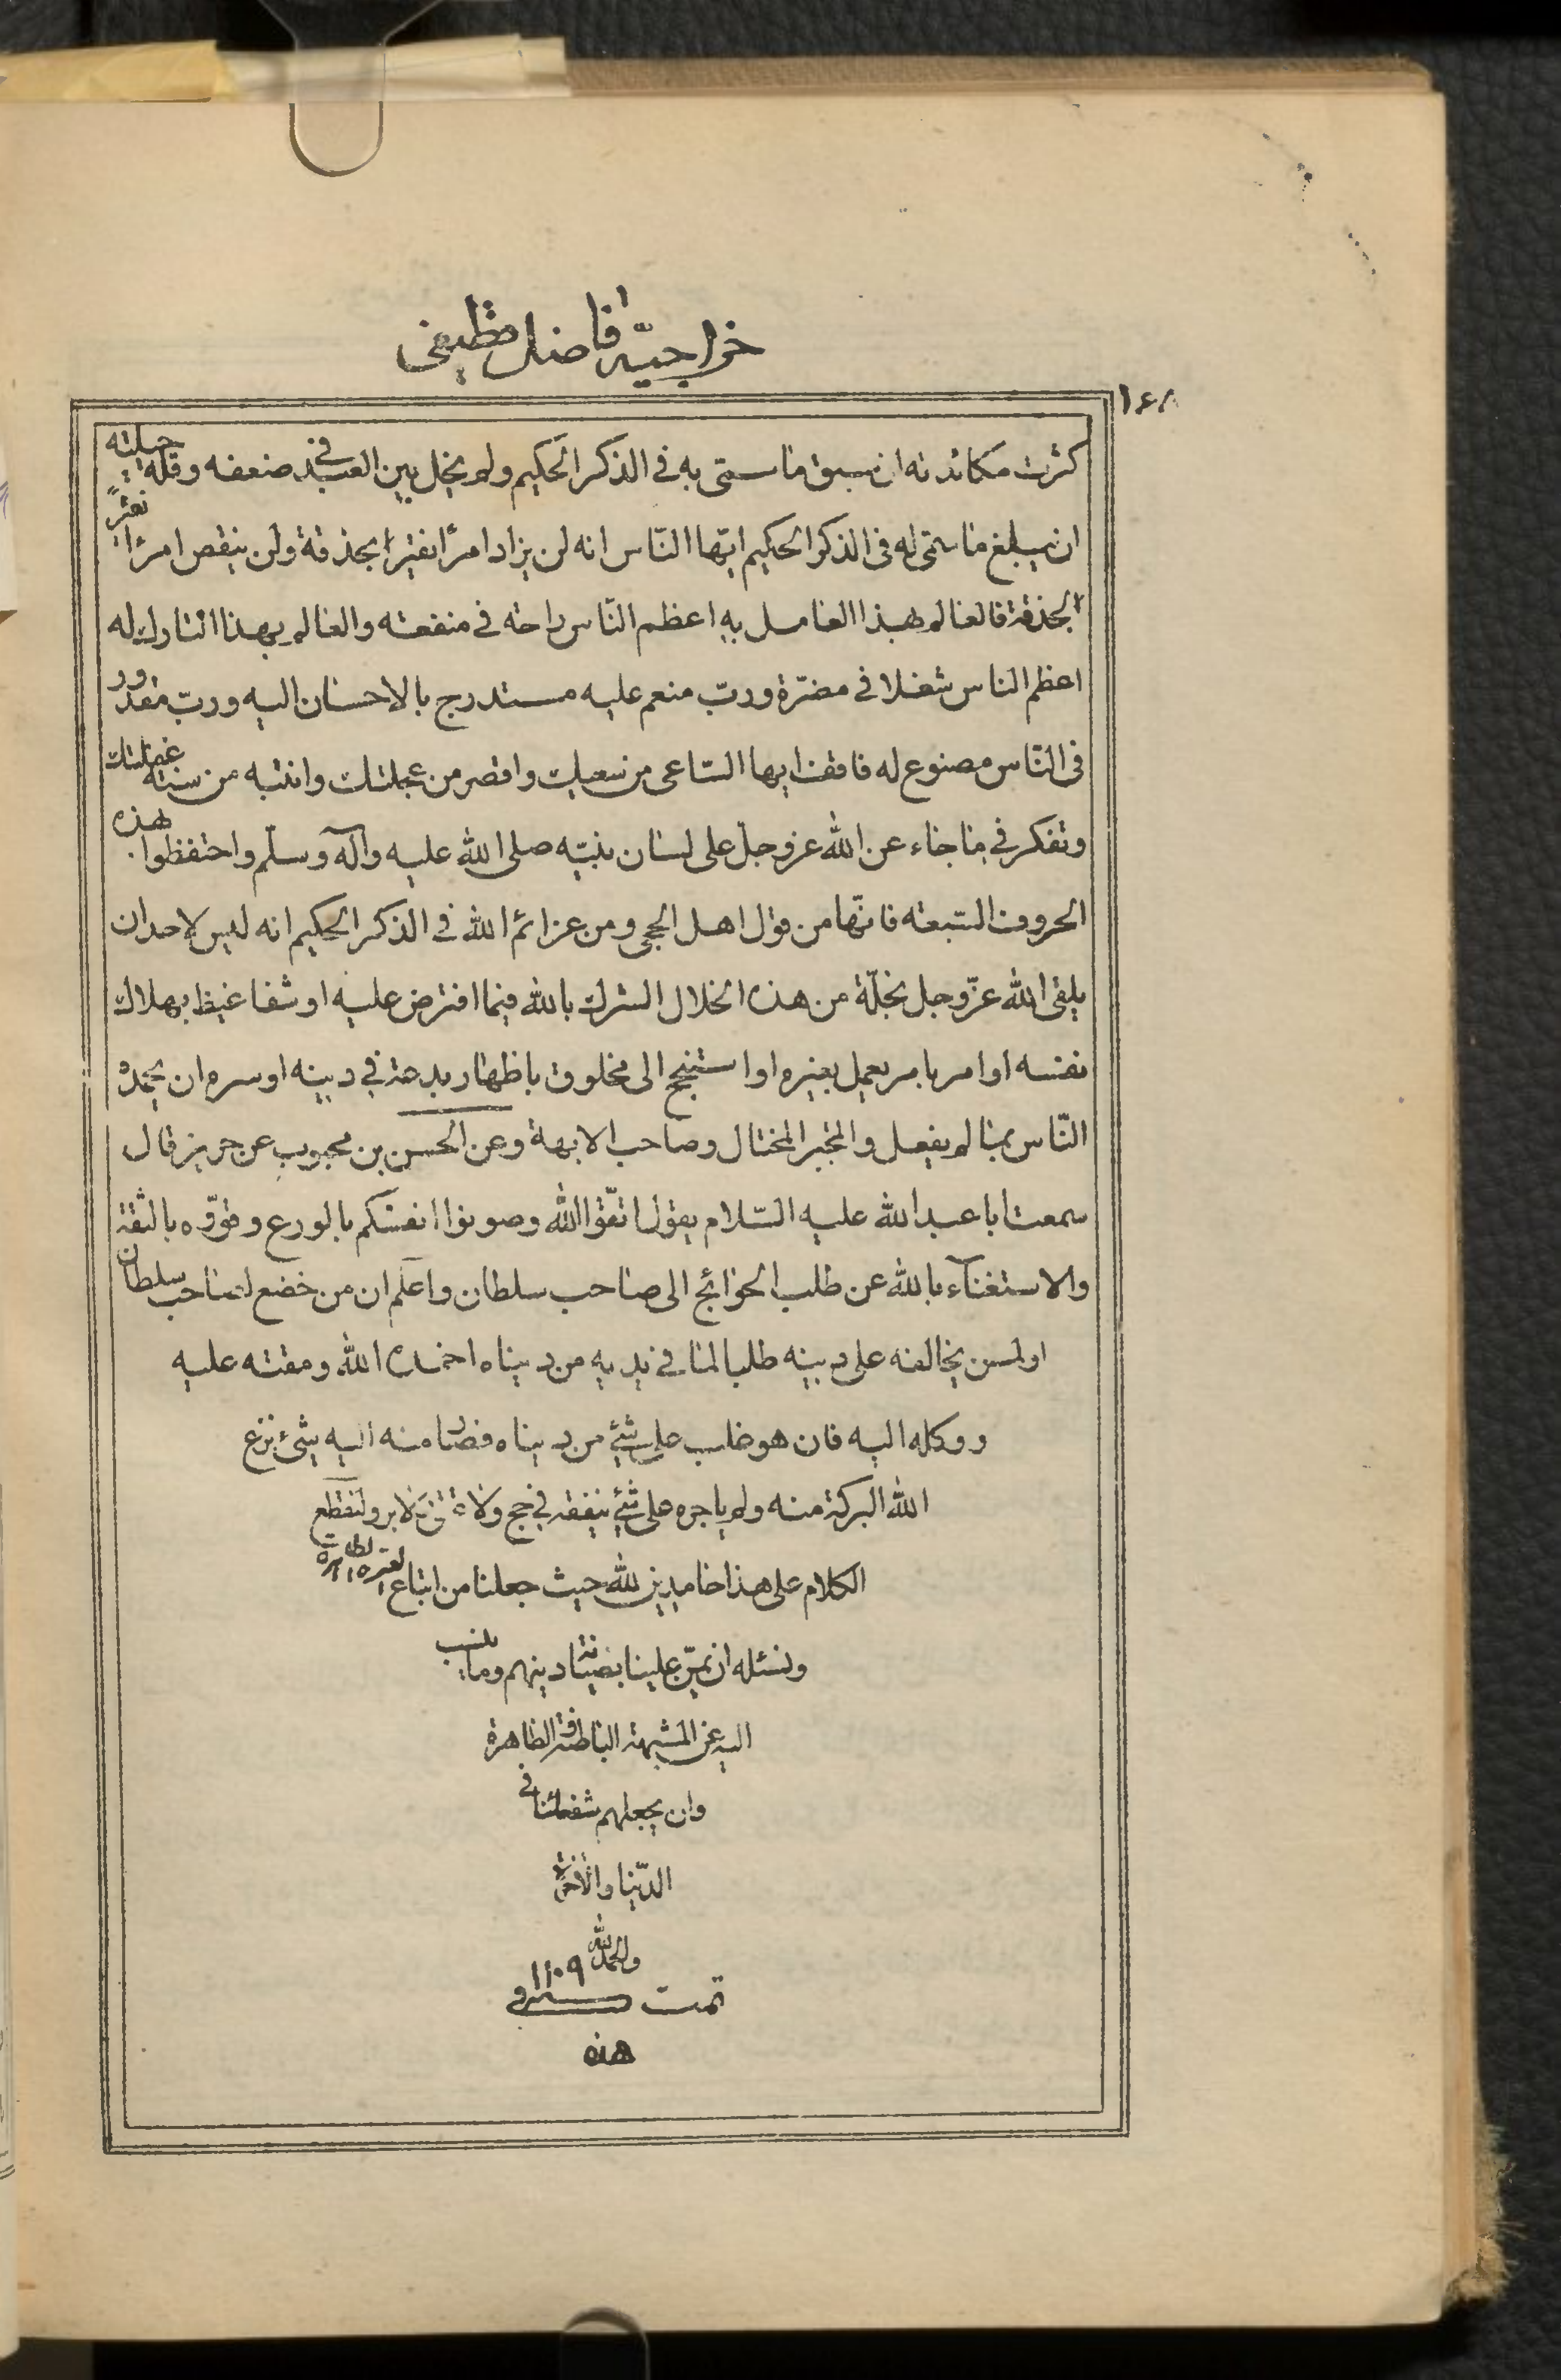 خراجیّه فاضل قطیفی
۱۶۸
كثرت مكائدته ان يسبق ما سمّى به فى الذكر الحكيم ولم يخل بين العبد فى ضعفه وقلة حيلته
ان يبلغ ما سمّى له فى الذكر الحكيم ايّها النّاس انه لن يزاد امرًا نقيرا بحذقة ولن ينقص امرًا نقيرً
الحذقة فالعالم بهذا العامل به اعظم النّاس راحة فى منفعته والعالم بهذا التارك له
اعظم الناس شغلا فى مضرّة وربّ منعم عليه مستدرج بالاحسان اليه وربّ مغدور
فى النّاس مصنوع له فافق ايها السّاعى من سعيك واقصر من عجلتك وانتبه من سنة غفلتك
وتفكر فى ما جاء عن الله عز وجل على لسان نبيّه صلى الله عليه وآله وسلّم واحتفظوا هذه
الحروف السّبعة فانّها من قول اهل الحجى ومن عزائم الله فى الذكر الحكيم انه ليس لاحد ان
يلقى الله عزّ وجل بخلّة من هذه الخلال الشرك بالله فيما افترض عليه او شفا غيظ بهلاك
نفسه او امر بامر يعمل بغيره او استنجح الى مخلوق باظهار بدعة فى دينه او سره ان يحمده
النّاس بما لم يفعل والمتجبر المختال وصاحب الابهة وعن الحسن بن محبوب عن حريز قال
سمعت ابا عبد الله عليه السّلام يقول اتّقوا الله وصونوا انفسكم بالورع وقوّوه بالثقة
والاستغناء بالله عن طلب الحوائج الى صاحب سلطان واعلم ان من خضع لصاحب سلطان
او لمن يخالفه على دينه طلبا لما فى يديه من دنياه اخمده الله ومقته عليه
ووكله اليه فان هو غلب على شئ من دنياه فصار منه اليه شئ نزع
الله البركة منه ولم ياجره على شئ ينفقه فى حج ولا عتق ولا بر ولنقطع
الكلام على هذا حامدين لله حيث جعلنا من اتباع العترة الطاهرة
ونسئله ان يمنّ علينا بصيانة دينهم وما ينسب
اليه عن المشبهة الباطنة والظاهرة
وان يجعلهم شفعائنا فى
الدّنيا والآخرة
والحمد لله
تمت ۱۱۰۹
هذه